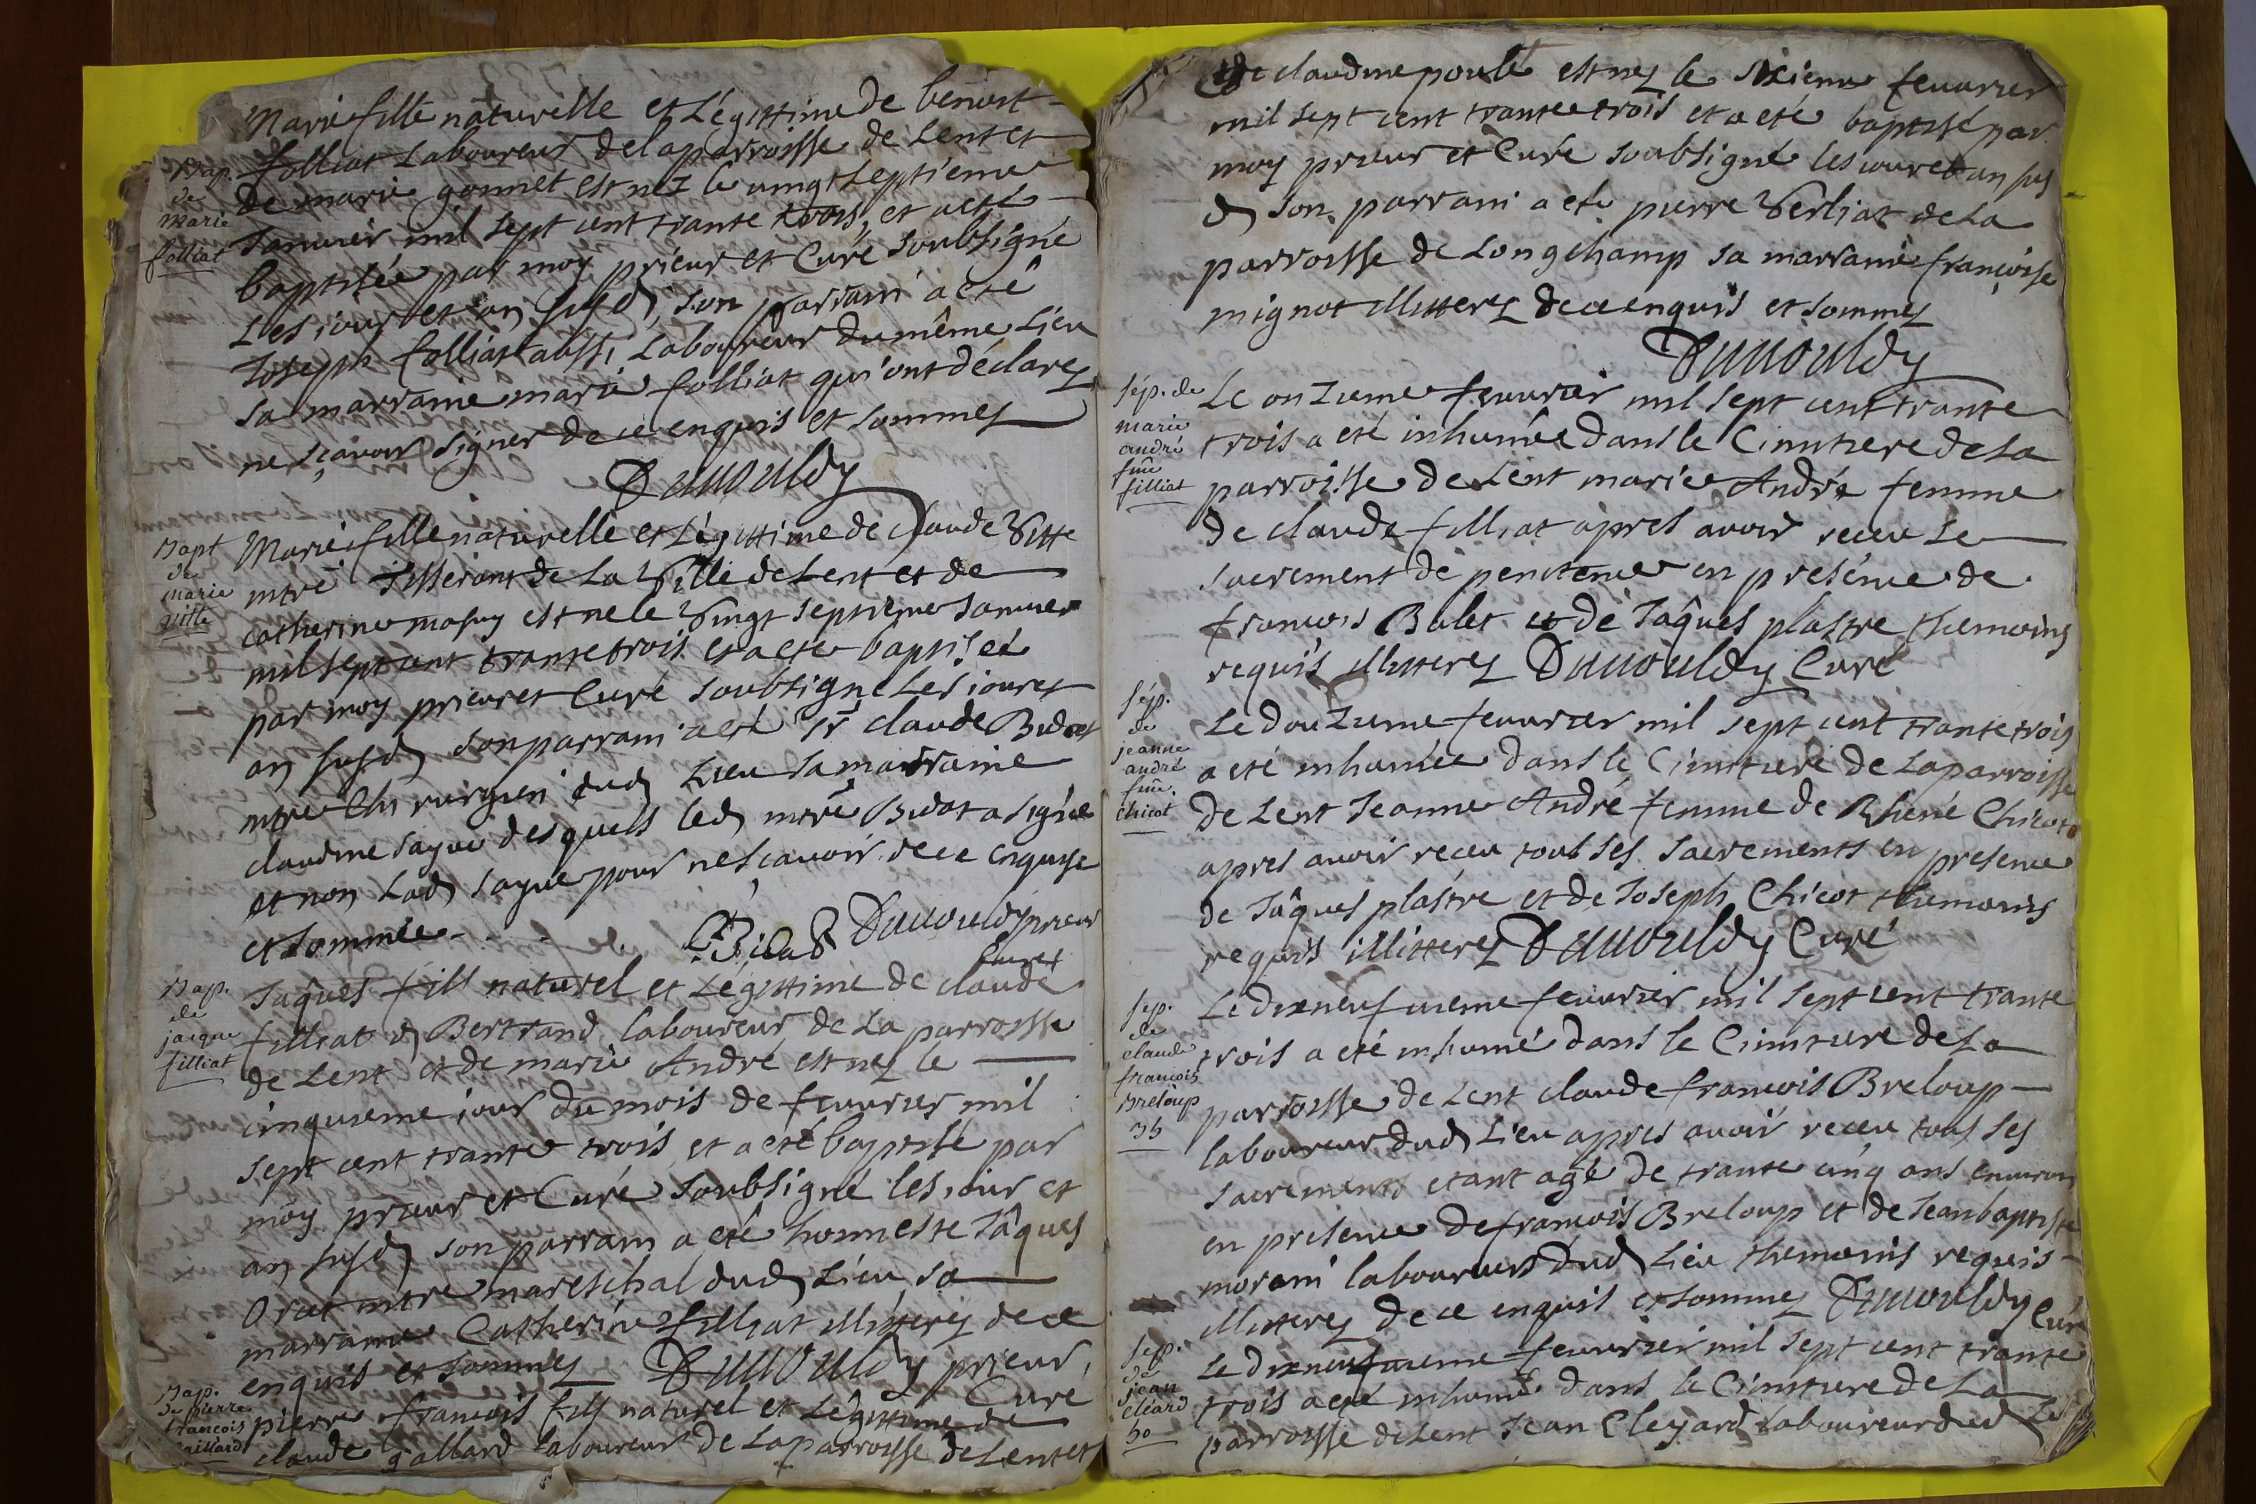 Bap.
de
marie
folliat
Marie fille naturelle et Légittime de benoist
folliat Laboureur de la parroisse de Lent et
de marie gonnet est nez le vingt septieme
Januier mil sept cent trante trois, et a eté
baptisée par moy prieur et Curé soubsigné
Les iour et an susd, son parrain a eté
Joseph folliat aussi Laboureur du même Lieu
sa marraine marie folliat qui ont déclarez
ne sçavoir signer de ce enquis et sommez
Bapt
de
marie
vitte
Marie fille naturelle et Légittime de Claude Vitte
mtre Tisserant de La Ville de Lent et de
catherine est ne le Vingt septieme Januier
mil sept cent trante trois et a ete baptisée
par moy prieur et Curé soubsigné Les iour et
an susd son parrain a eté Sr claude Bidat
mtre Chirurgien dud Lieu sa marraine
claudine sayue desquels led mtre Bidat a signé
et non Lad sayue pour ne scauoir de ce enquise
et sommée
prieur
Curé
Bap.
de
jacque
filliat
Jâques fils naturel et Légittime de claude
filliat d Bertrand laboureur de La parroisse
de Lent et de marie André est nez le
cinquieme iour du mois de feuurier mil
sept cent trante trois et a eté baptisé par
moy prieur et Curé soubsigné les iour et
an susd son parrain a eté honneste Jâques
Orat mtre mareschal dud Lieu sa
marraine Catherine filliat illitterez de ce
enquis et sommez prieur,
Curé
Bap.
de pierre
francois
Gaillard
pierre francois fils naturel et Légittime de
claude gallard laboureur de La parroisse de Lent et
de claudine est nez le sixieme feuurier
mil sept cent trante trois et a eté baptisé par
moy prieur et Curé soubsigné les iour et an sus
d son parrain a eté pierre Verliat de La
parroisse de Longchamp sa marraine françoise
mignot illitterez de ce enquis et sommez
sép. de
marie
andré
fme
filliat
Le onzieme feuurier mil sept cent trante
trois a eté inhumée dans le Cimitiere de La
parroisse de Lent marie André femme
de claude filliat apres avoir receu Le
sacrement de penitence en présence de
francois Bulet et de Jâques plastre themoins
requis illitterez Curé
sép.
de
jeanne
andré
fme.
chicot
Le douzieme feuurier mil sept cent trante trois
a eté inhumée dans le Cimitiere de La parroisse
de Lent Jeanne André femme de Rhené Chicot
apres auoir receu tout ses sacrements en presence
de Jâques plastre et de Joseph Chicot themoins
requis illitterez Curé
sép.
de
claude
francois
Breloup
35
Le dixneufuieme feuurier mil sept cent trante
trois a eté inhumé dans le Cimitiere de La
parroisse de Lent claude francois Breloup
laboureur dud Lieu apres auoir receu tous ses
sacrements etant agé de trante cinq ans enuiron
en presence de francois Breloup et de Jean baptiste
morani laboureurs dud Lieu themoins requis
illitterez de ce enquis et sommez Curé
sép.
de
jean
cléard
50
Le dixneufuieme feuurier mil sept cent trante
trois a eté inhumé dans le Cimitiere de La
parroisse de Lent Jean Cleyard Laboureur dud